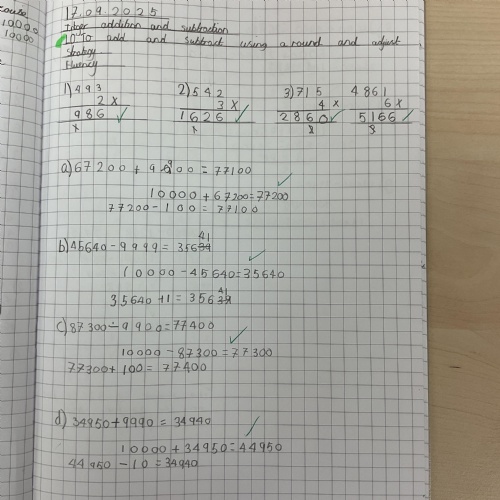 17.09.2025
addition and subtraction
To add and subtract using a round and adjust
strategy
Fluency
1) 493 2) 542 3) 715 4 861
2 x 3 x 4 x 6x
986 ✓ 1626 ✓ 2860 ✓ 5166 ✓
a) 67200 + 9900 = 77100
10000 + 67200 = 77200
77200 - 100 = 77100
b) 45640 - 9999 = 35641
10000 - 45640 = 35640
35640 + 1 = 35641
c) 87300 - 9900 = 77400
10000 - 87300 = 77300
77300 + 100 = 77400
d) 34950 + 9990 = 34940
10000 + 34950 = 44950
44950 - 10 = 34940
10000
10000